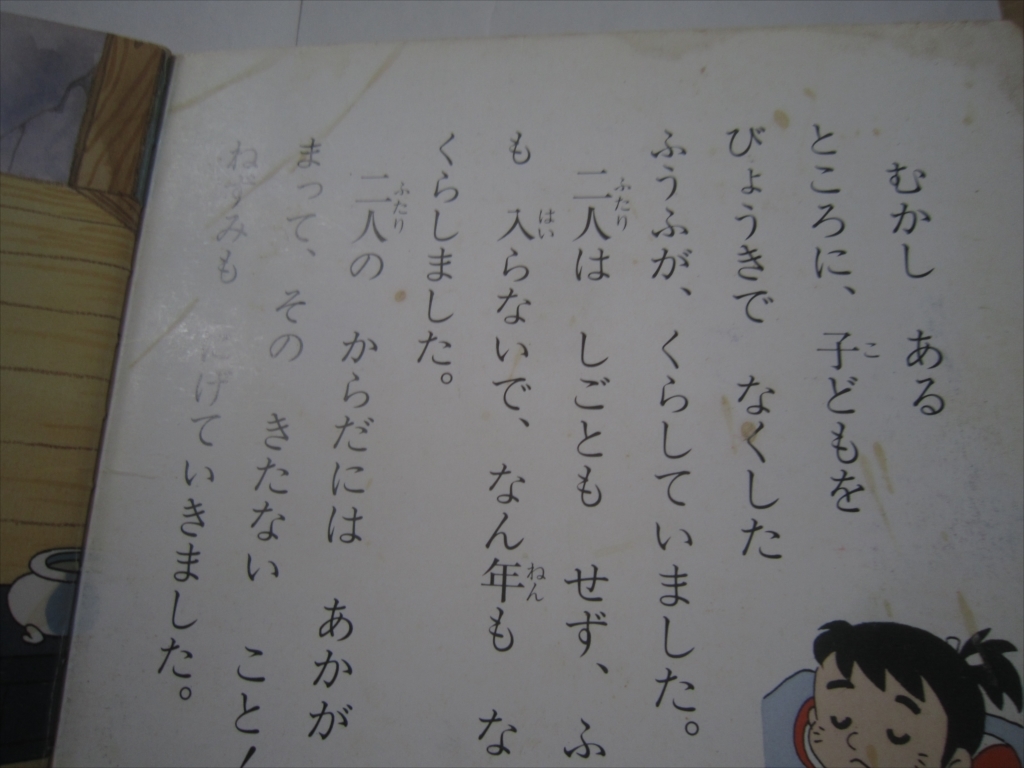 むかし ある
ところに、子どもを
びょうきで なくした
ふうふが、くらしていました。
二人は しごとも せず、ふ
も 入らないで、なん年も な
くらしました。
二人の からだには あかが
まって、その きたない こと!
ねずみも にげていきました。